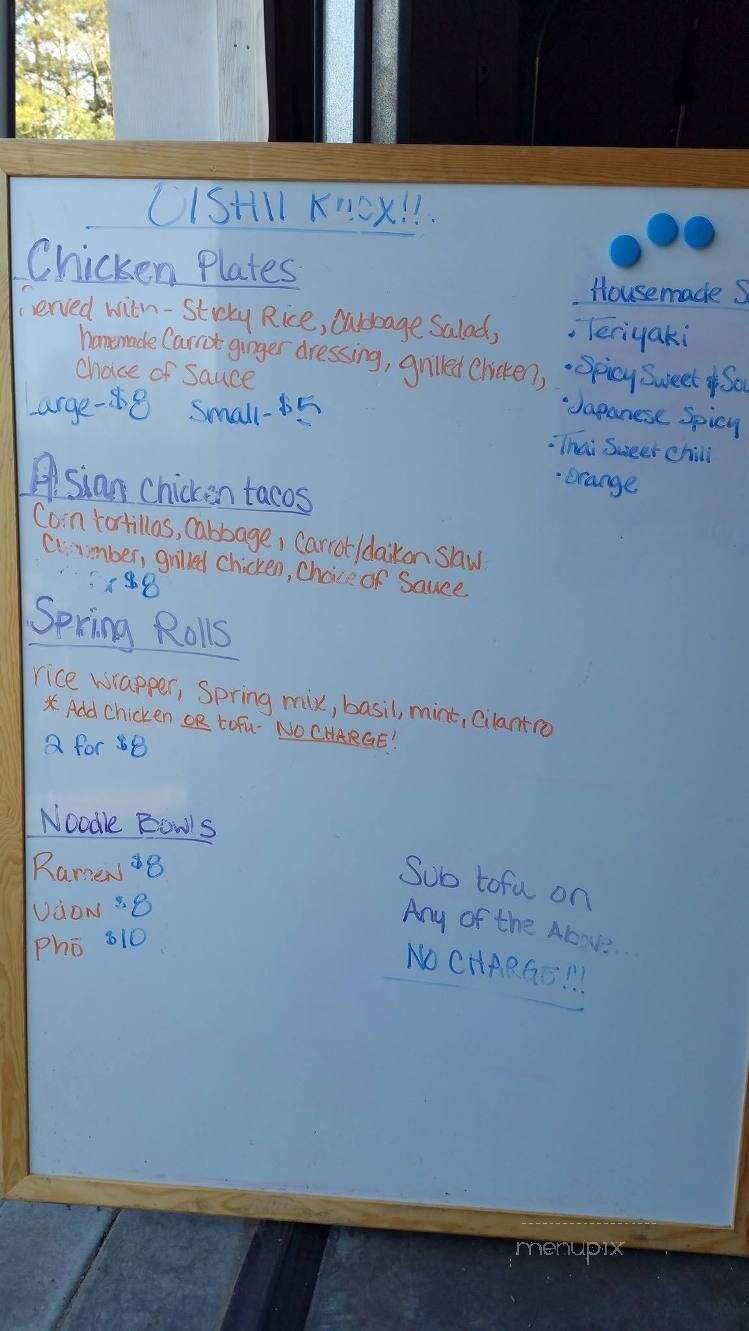 OISHII KNOX!!.
Chicken Plates
Served with - Sticky Rice, Cabbage Salad,
homemade Carrot ginger dressing, grilled Chicken,
Choice of Sauce
Large-$8 Small-$5
Housemade S
• Teriyaki
• Spicy Sweet & Sou
• Japanese Spicy
• Thai Sweet Chili
• Orange
Asian Chicken tacos
Corn tortillas, Cabbage, Carrot/daikon Slaw
Cucumber, grilled Chicken, Choice of Sauce
$8
Spring Rolls
rice wrapper, Spring mix, basil, mint, Cilantro
* Add Chicken OR tofu- NO CHARGE!
2 for $8
Noodle Bowls
Ramen $8
Udon $8
Phō $10
Sub tofu on
Any of the Above...
NO CHARGE!!!
menupix